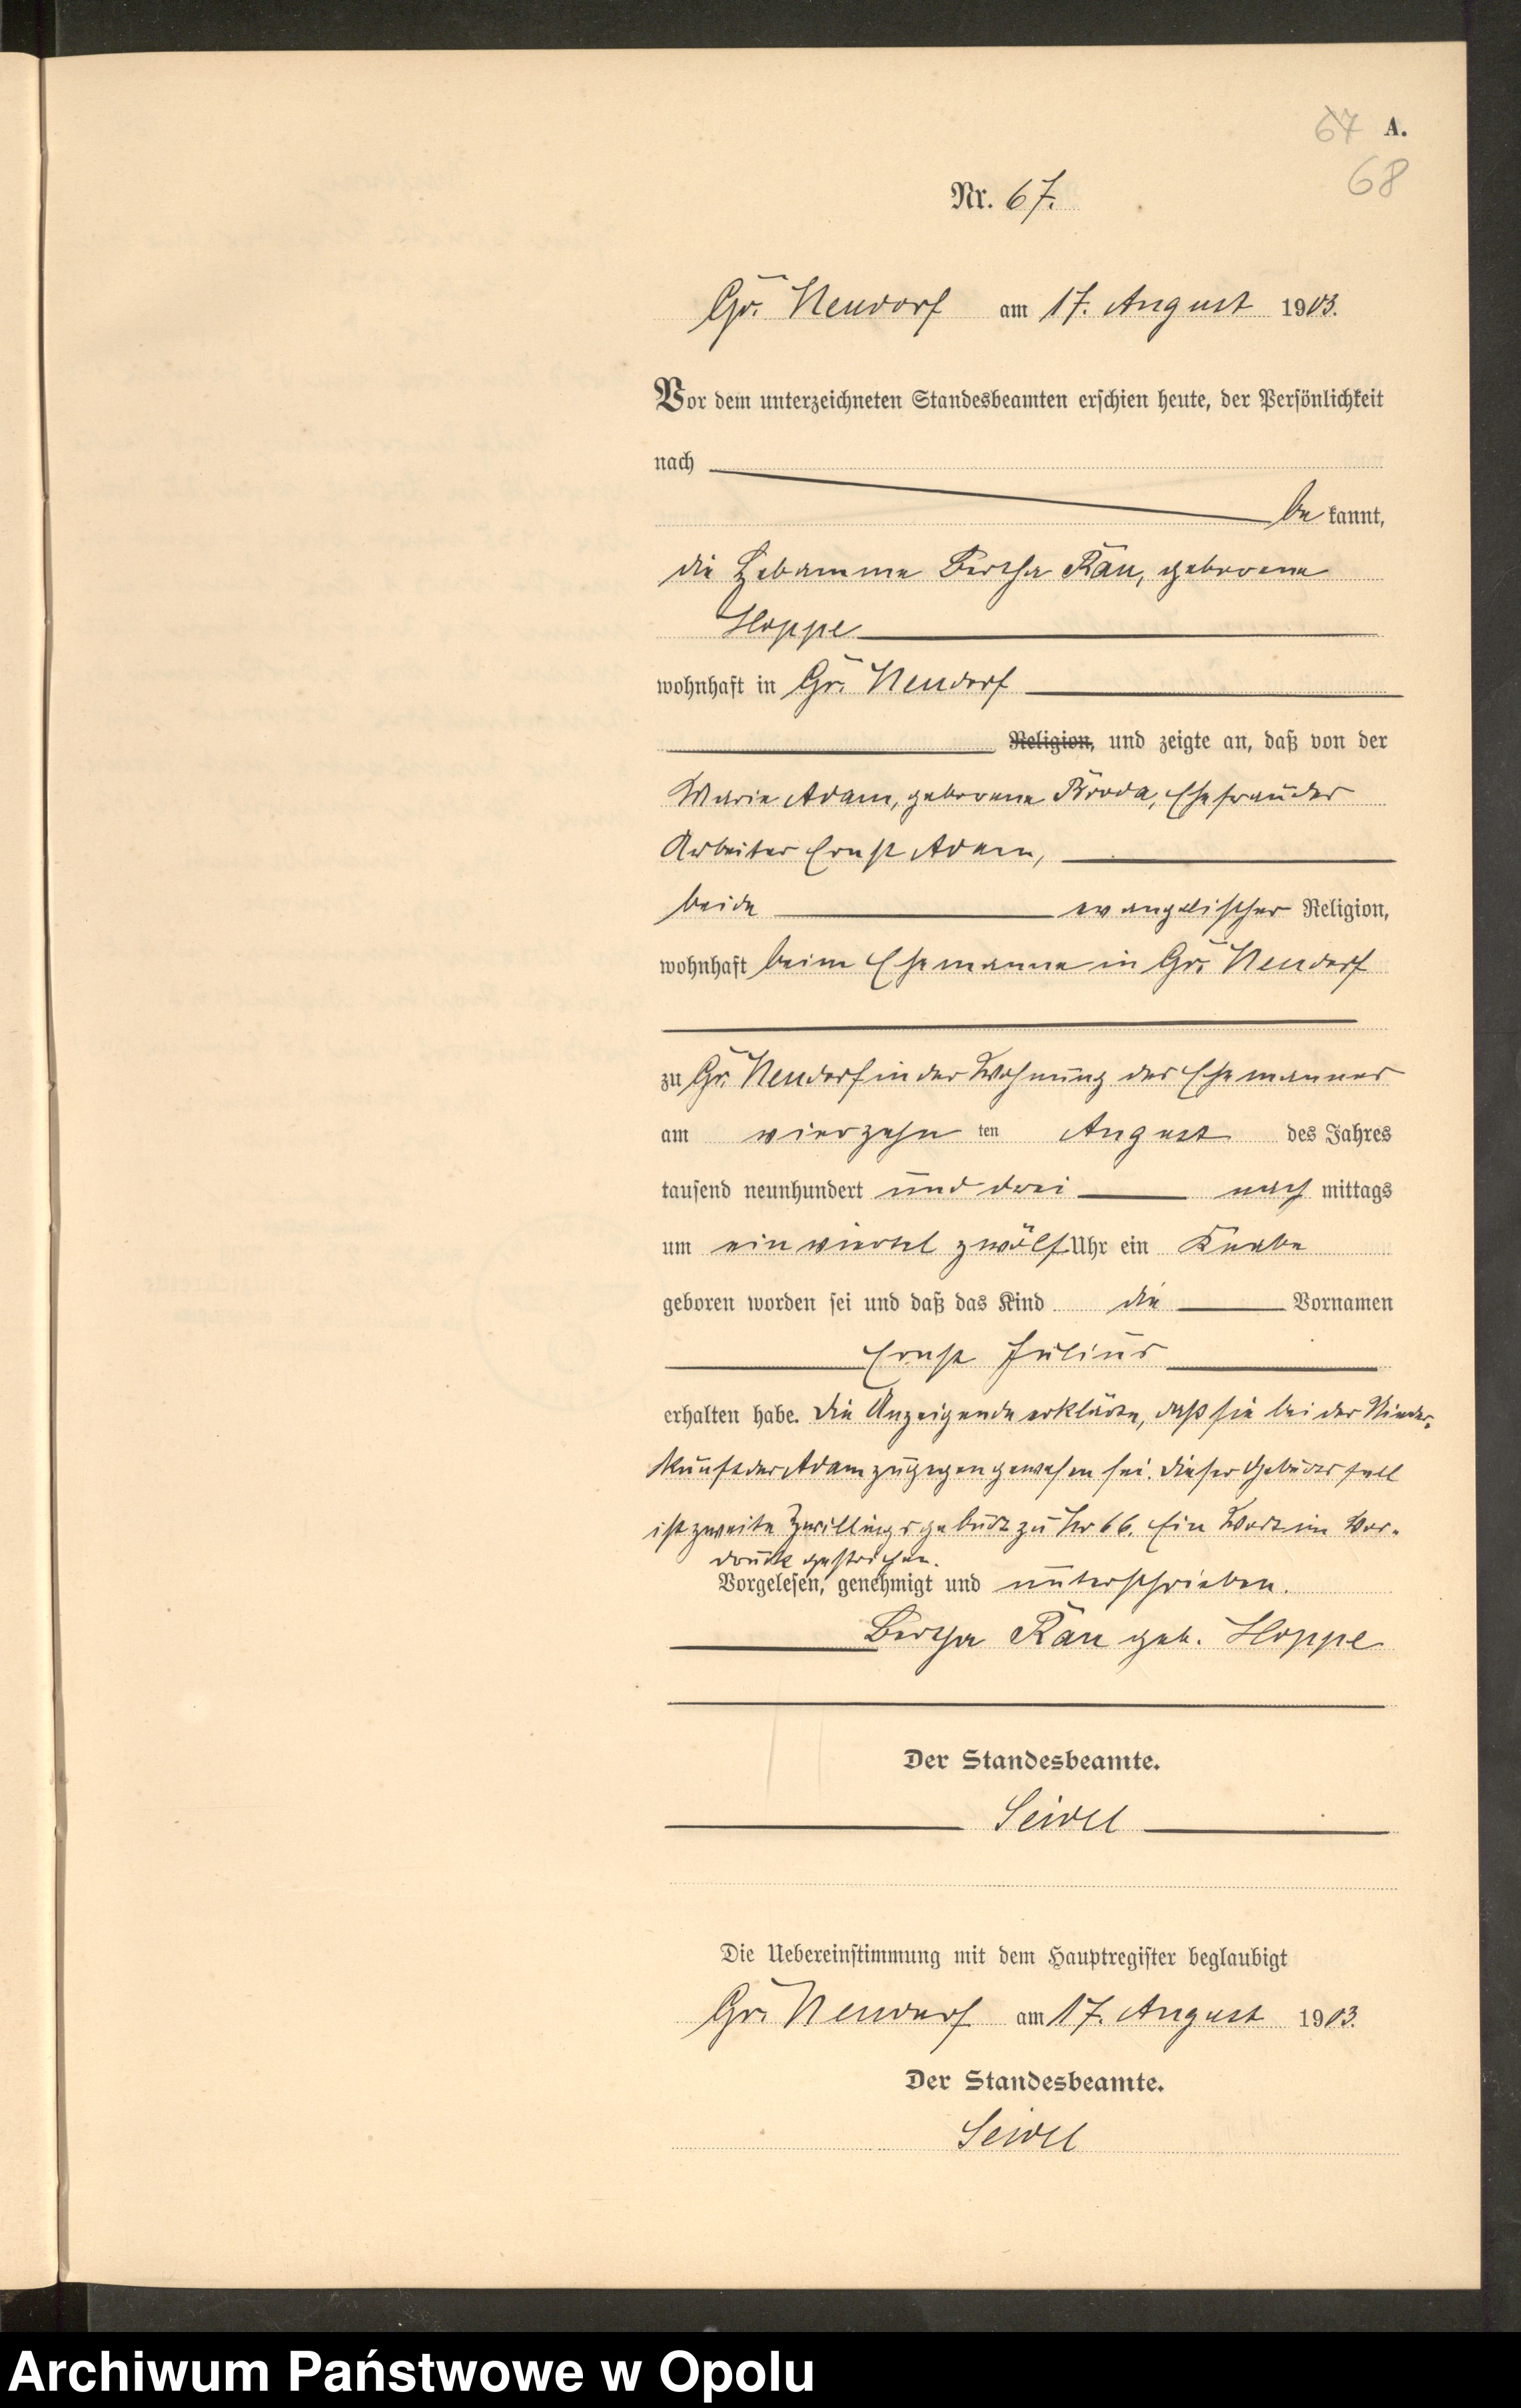 67 A.
68
Nr. 67.
Gr. Neudorf am 17. August 1903.
Vor dem unterzeichneten Standesbeamten erschien heute, der Persönlichkeit
nach
be kannt,
die Hebamme Bertha Rau, geborene
Hoppe
wohnhaft in Gr. Neudorf
Religion, und zeigte an, daß von der
Marie Adam, geborene Broda, Ehefrau des
Arbeiter Ernst Adam,
beide evangelischer Religion,
wohnhaft beim Ehemanne in Gr. Neudorf
zu Gr. Neudorf in der Wohnung des Ehemannes
am vierzehn ten August des Jahres
tausend neunhundert und drei nach mittags
um ein viertel zwölf Uhr ein Knabe
geboren worden sei und daß das Kind die Vornamen
Ernst Julius
erhalten habe. Die Anzeigende erklärte, daß sie bei der Nieder-
kunft der Adam zugegen gewesen sei. Dieser Geburtsfall
ist zweite Zwillingsgeburt zu Nr 66. Ein Wort im Vor-
druck gestrichen.
Vorgelesen, genehmigt und unterschrieben.
Bertha Rau geb. Hoppe
Der Standesbeamte.
Seidel
Die Uebereinstimmung mit dem Hauptregister beglaubigt
Gr. Neudorf am 17. August 1903.
Der Standesbeamte.
Seidel
Archiwum Państwowe w Opolu